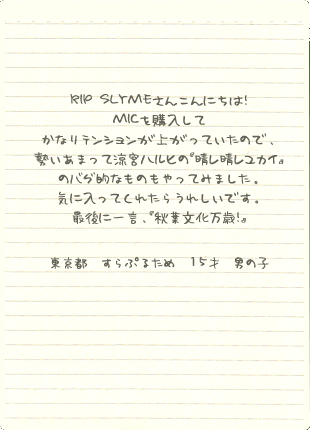 RIP SLYMEさんこんにちは!
MICを購入して
かなりテンションが上がっていたので、
勢いあまって涼宮ハルヒの『晴レ晴レユカイ』
のパダ的なものもやってみました。
気に入ってくれたらうれしいです。
最後に一言、『秋葉文化万歳!』
東京都 すらぷるため 15才 男の子